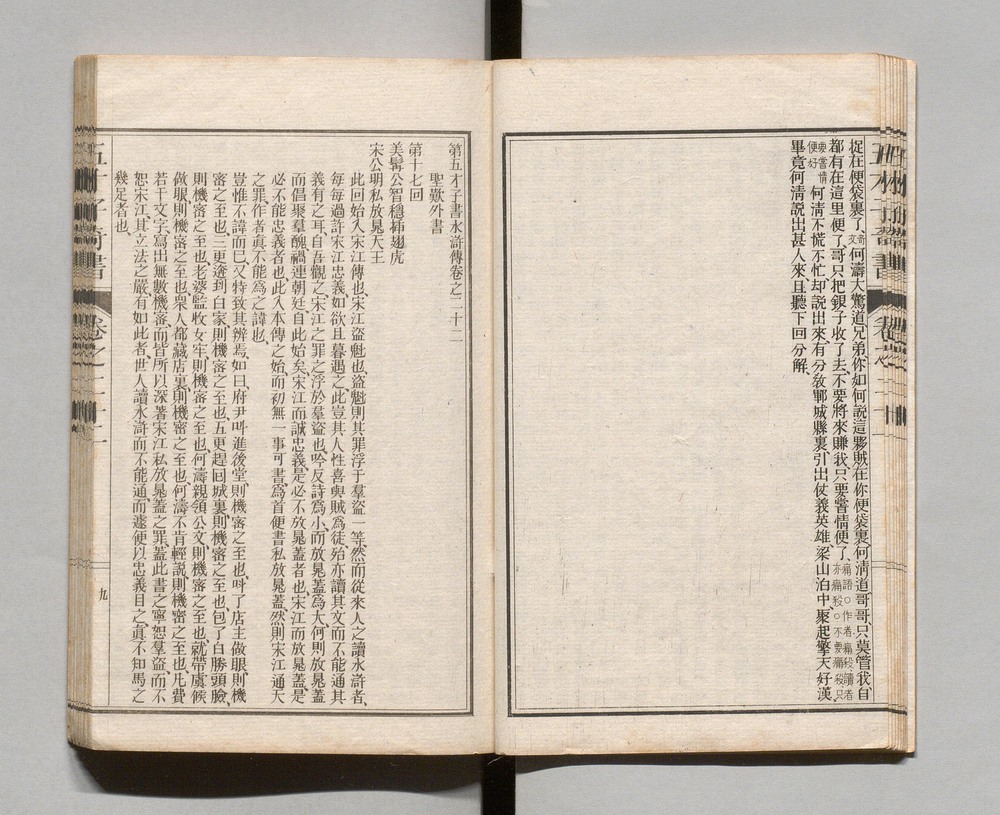 捉在便袋裏了奇文何濤大驚道兄弟你如何說這夥賊在你便袋裏何淸道哥哥只莫管我自
都有在這里便了哥只把銀子收了去不要將來賺我只要嘗情便了痛語○作者痛殺讀者亦痛殺○不要痛殺只
要嘗情便好何淸不慌不忙却說出來有分敎鄆城縣裏引出仗義英雄梁山泊中聚起擎天好漢
畢竟何淸說出甚人來且聽下回分解
第五才子書水滸傳卷之二十二
聖歎外書
第十七回
美髯公智穩揷翅虎
宋公明私放晁天王
此回始入宋江傳也宋江盜魁也盜魁則其罪浮于羣盜一等然而從來人之讀水滸者
每每過許宋江忠義如欲旦暮遇之此豈其人性喜與賊爲徒殆亦讀其文而不能通其
義有之耳自吾觀之宋江之罪之浮於羣盜也吟反詩爲小而放晁蓋爲大何則放晁蓋
而倡聚羣醜禍連朝廷自此始矣宋江而誠忠義是必不放晁蓋者也宋江而放晁蓋是
必不能忠義者也此入本傳之始而初無一事可書爲首便書私放晁蓋然則宋江通天
之罪作者眞不能爲之諱也
豈惟不諱而巳又特致其辨焉如曰府尹呌進後堂則機密之至也呌了店主做眼則機
密之至也三更逩到白家則機密之至也五更趕回城裏則機密之至也包了白勝頭臉
則機密之至也老婆監收女牢則機密之至也何濤親領公文則機密之至也就帶虞候
做眼則機密之至也衆人都藏店裏則機密之至也何濤不肯輕說則機密之至也凡費
若干文字寫出無數機密而皆所以深著宋江私放晁蓋之罪蓋此書之寧恕羣盜而不
恕宋江其立法之嚴有如此者世人讀水滸而不能通而遽便以忠義目之眞不知馬之
幾足者也
五才子奇書
卷之二十二
九